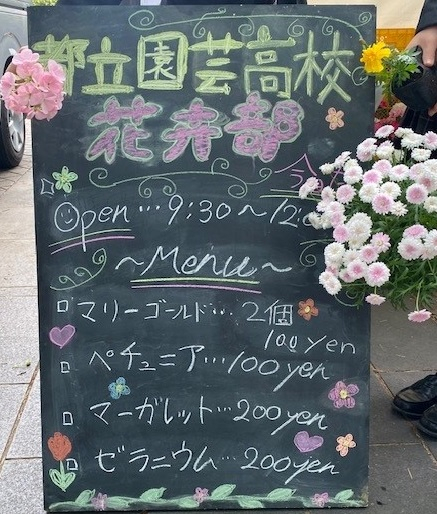 都立園芸高校
花卉部
Open…9:30〜12:0
〜Menu〜
マリーゴールド…2個
100yen
ペチュニア…100yen
マーガレット…200yen
ゼラニウム…200yen